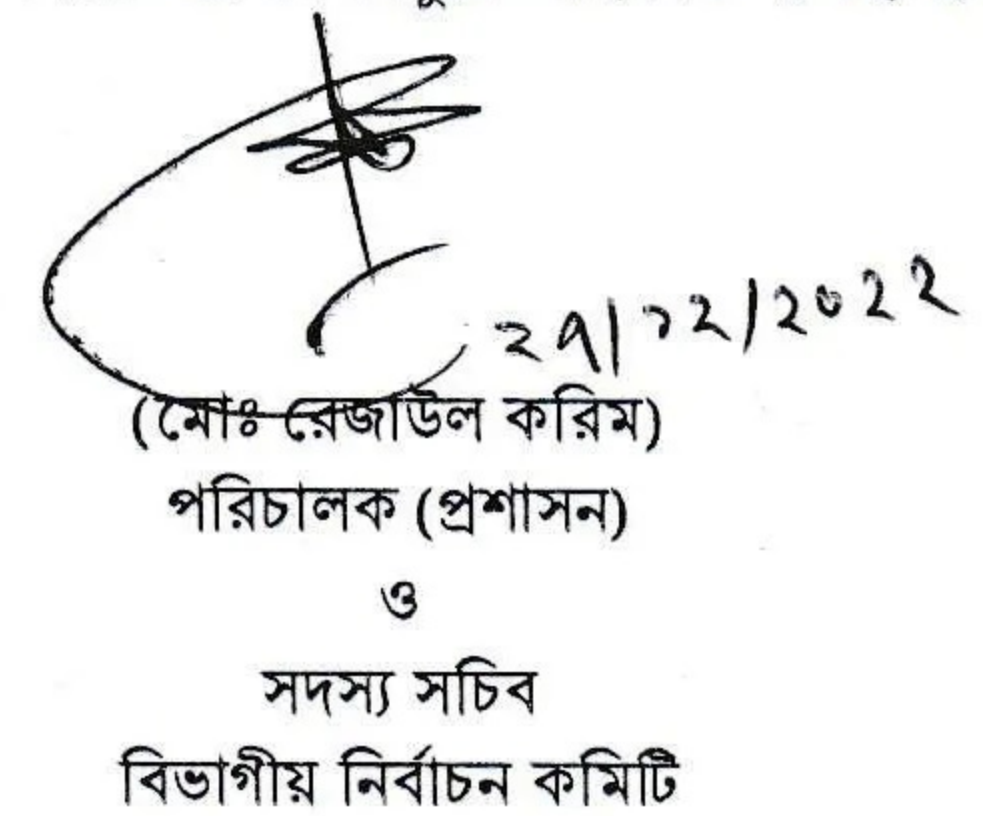 ২৭/১২/২০২২
(মোঃ রেজাউল করিম)
পরিচালক (প্রশাসন)
ও
সদস্য সচিব
বিভাগীয় নির্বাচন কমিটি